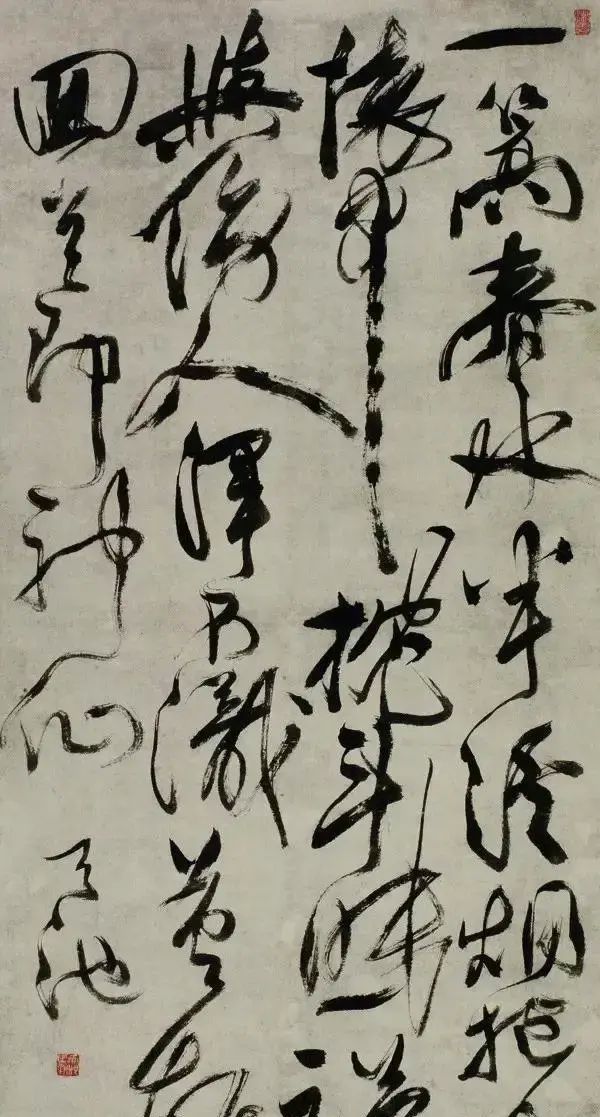 一篙春水半溪烟抱
懷中枕斗眠
傍人渾不識英
回首即神仙
天池